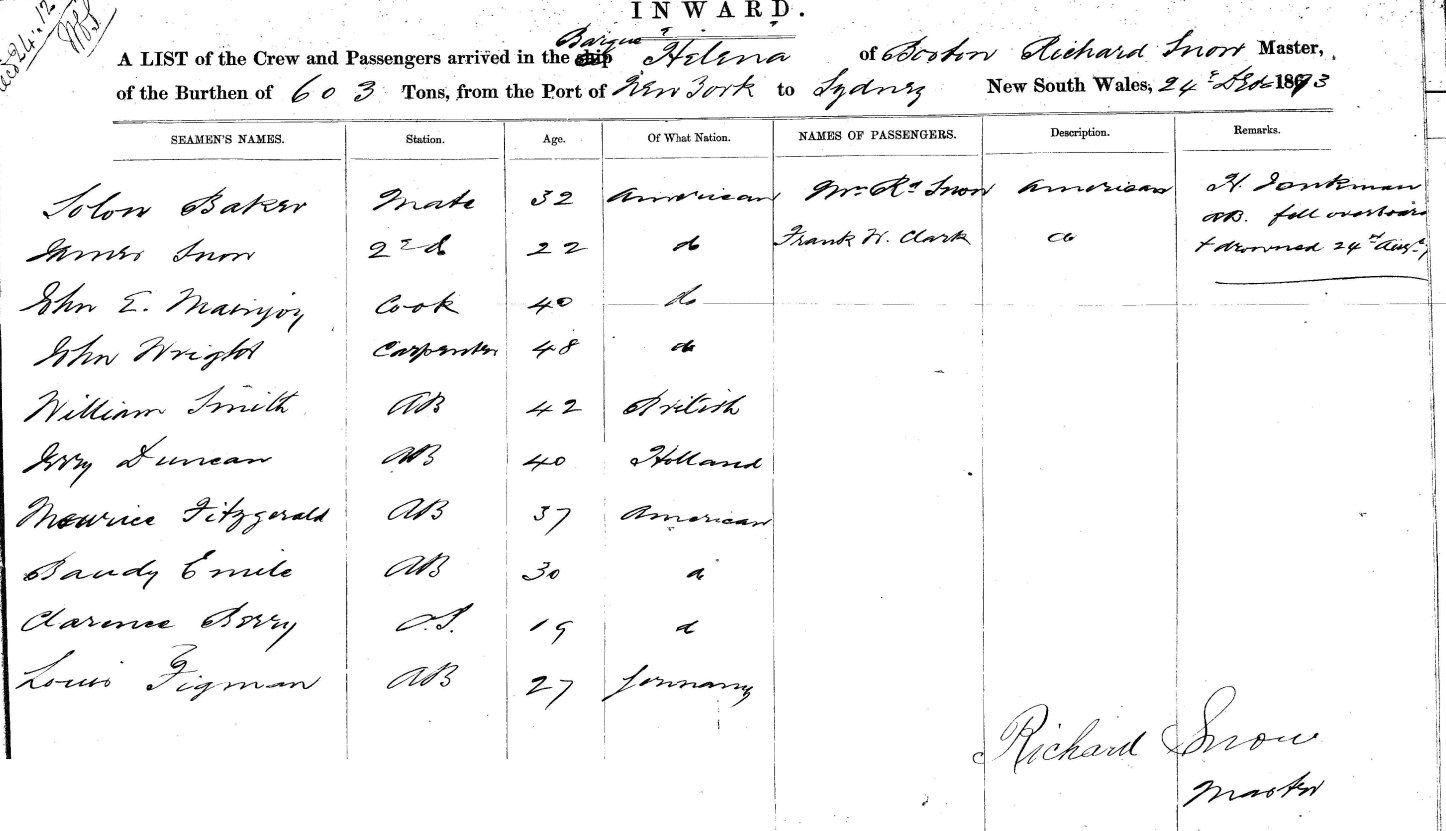 INWARD.
A LIST of the Crew and Passengers arrived in the ship Barque "Helena" of Boston Richard Snow Master,
of the Burthen of 603 Tons, from the Port of New York to Sydney New South Wales, 24th Dec 1873
SEAMEN'S NAMES. Station. Age. Of What Nation. NAMES OF PASSENGERS. Description. Remarks.
Solon Baker Mate 32 American Mrs Rd Snow American H. Jonkman
AB. fell overboard
James Snow 2nd 22 do Frank W. Clark do & drowned 24th Augt
John E. Cook 40 do
John Wright Carpenter 48 do
William Smith AB 42 British
Jerry Duncan AB 40 Holland
Maurice Fitzgerald AB 37 American
Baudy Emile AB 30 do
Clarence Berry O.S. 19 do
Louis Figman AB 27 Germany
Richard Snow
Master